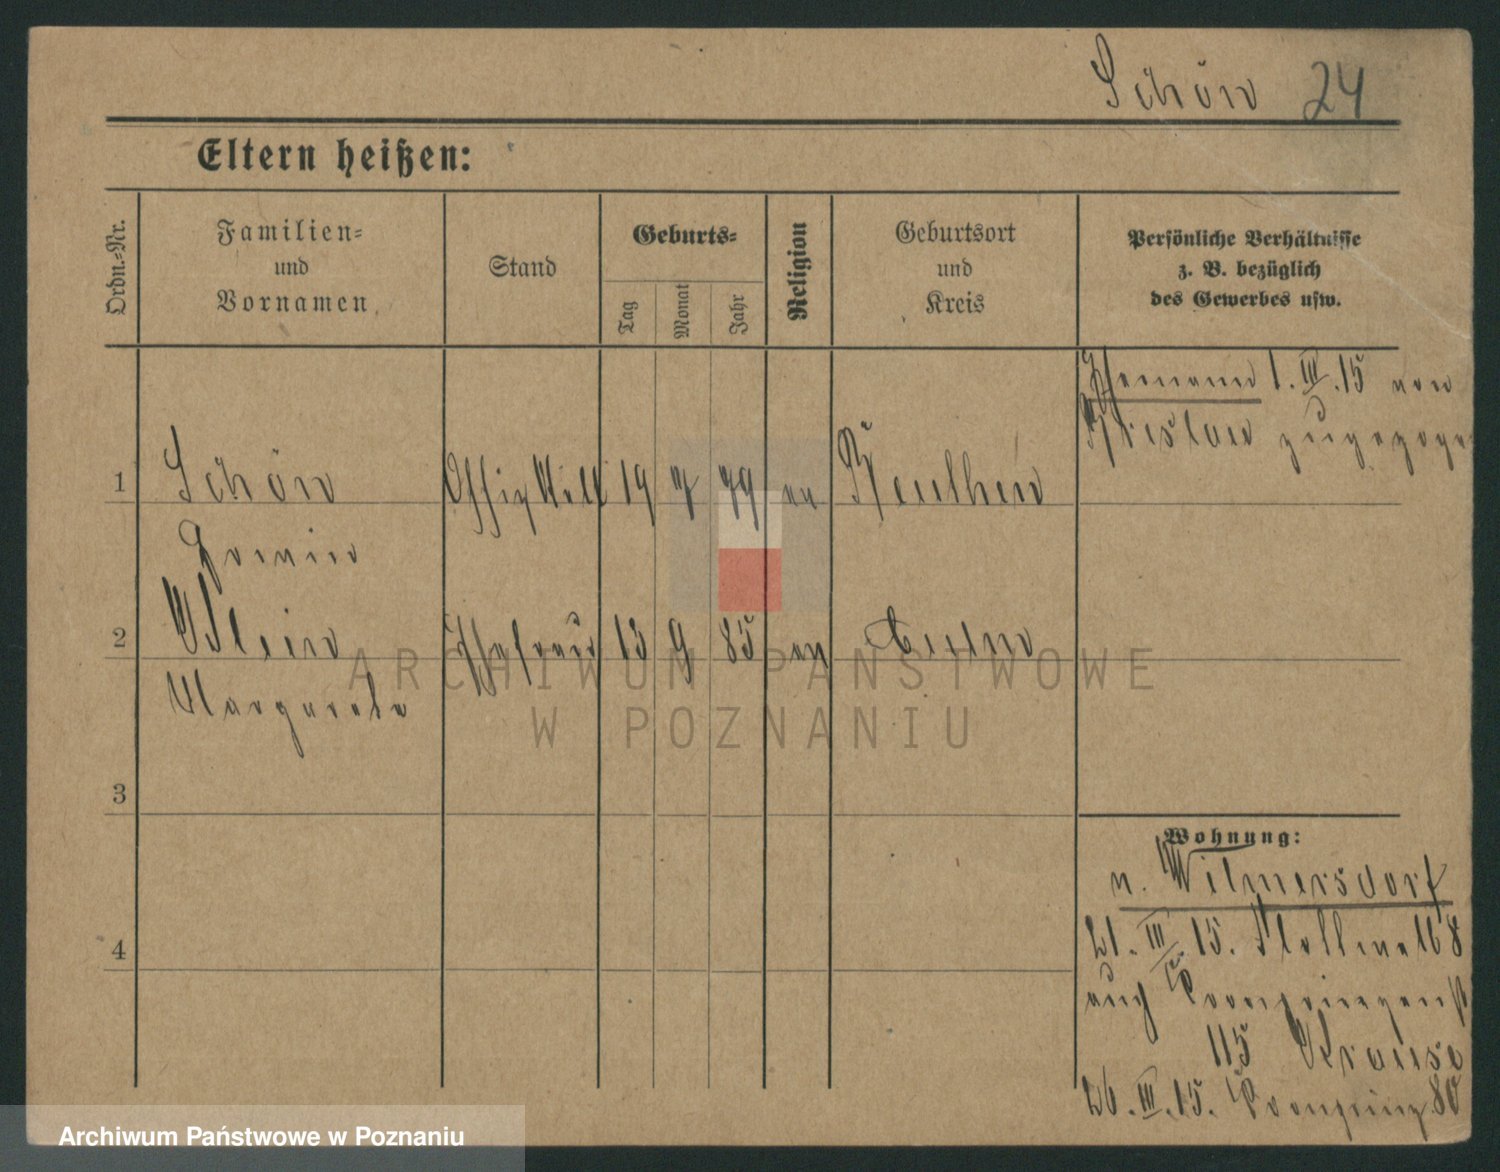 Schön 24
Eltern heißen:
Ordn.-Nr.
Familien-
und
Vornamen
Stand
Geburts-
Tag
Monat
Jahr
Religion
Geburtsort
und
Kreis
Persönliche Verhältnisse
z. B. bezüglich
des Gewerbes usw.
Ehemann 1. III. 15 von
Breslau zugezogen
1 Schön 19 7 79 ev Beuthen
Erwin
2 Klein Ehefrau 13 9 85 ev Culm
Margarete
3
4
Wohnung:
n. Wilmersdorf
21. III. 15.
auf Kronprinzenst
115 Krause
26. III. 15. Kronprinz 80
ARCHIWUM PAŃSTWOWE
W POZNANIU
Archiwum Państwowe w Poznaniu